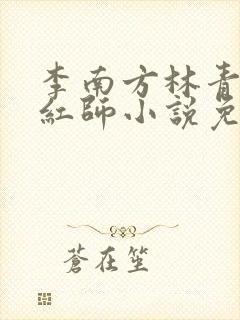 李南方林青
紅師小說免
蒼在笙